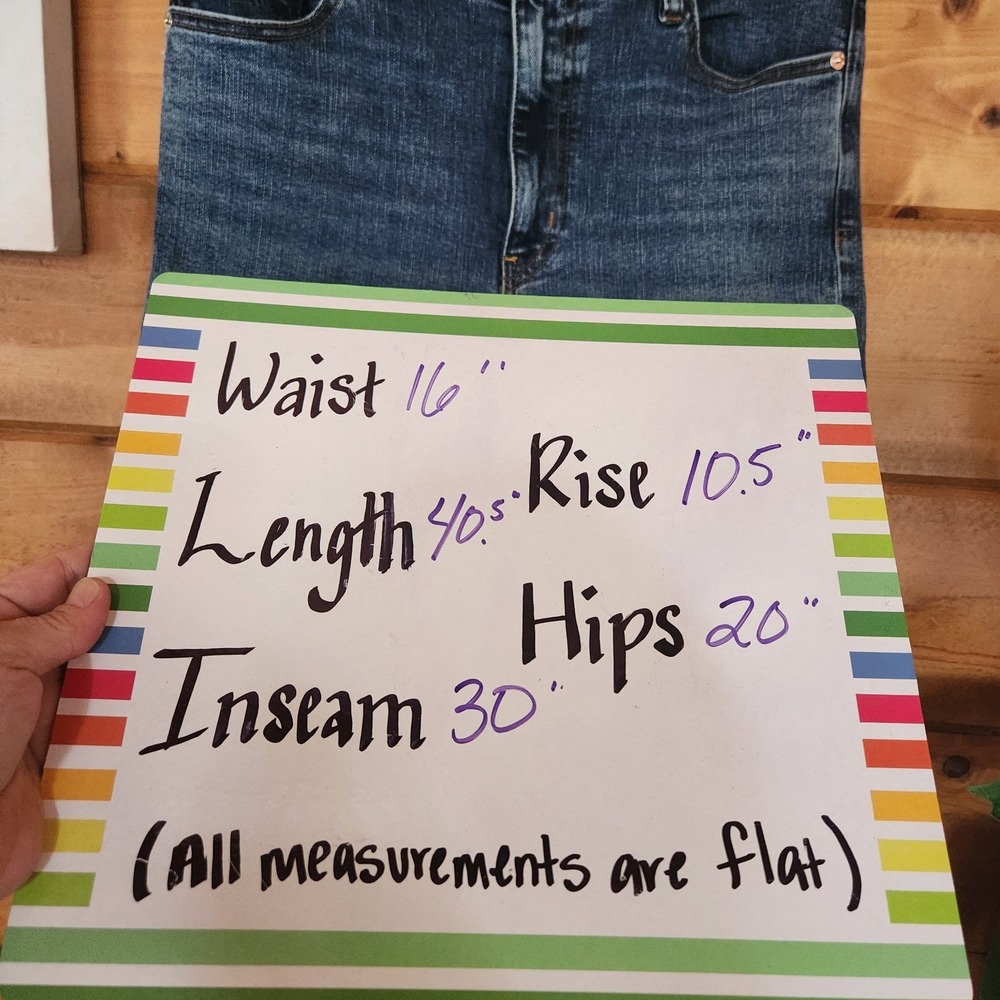 Waist 16"
Rise 10.5"
Length 40.5"
Hips 20"
Inseam 30"
(All measurements are flat)